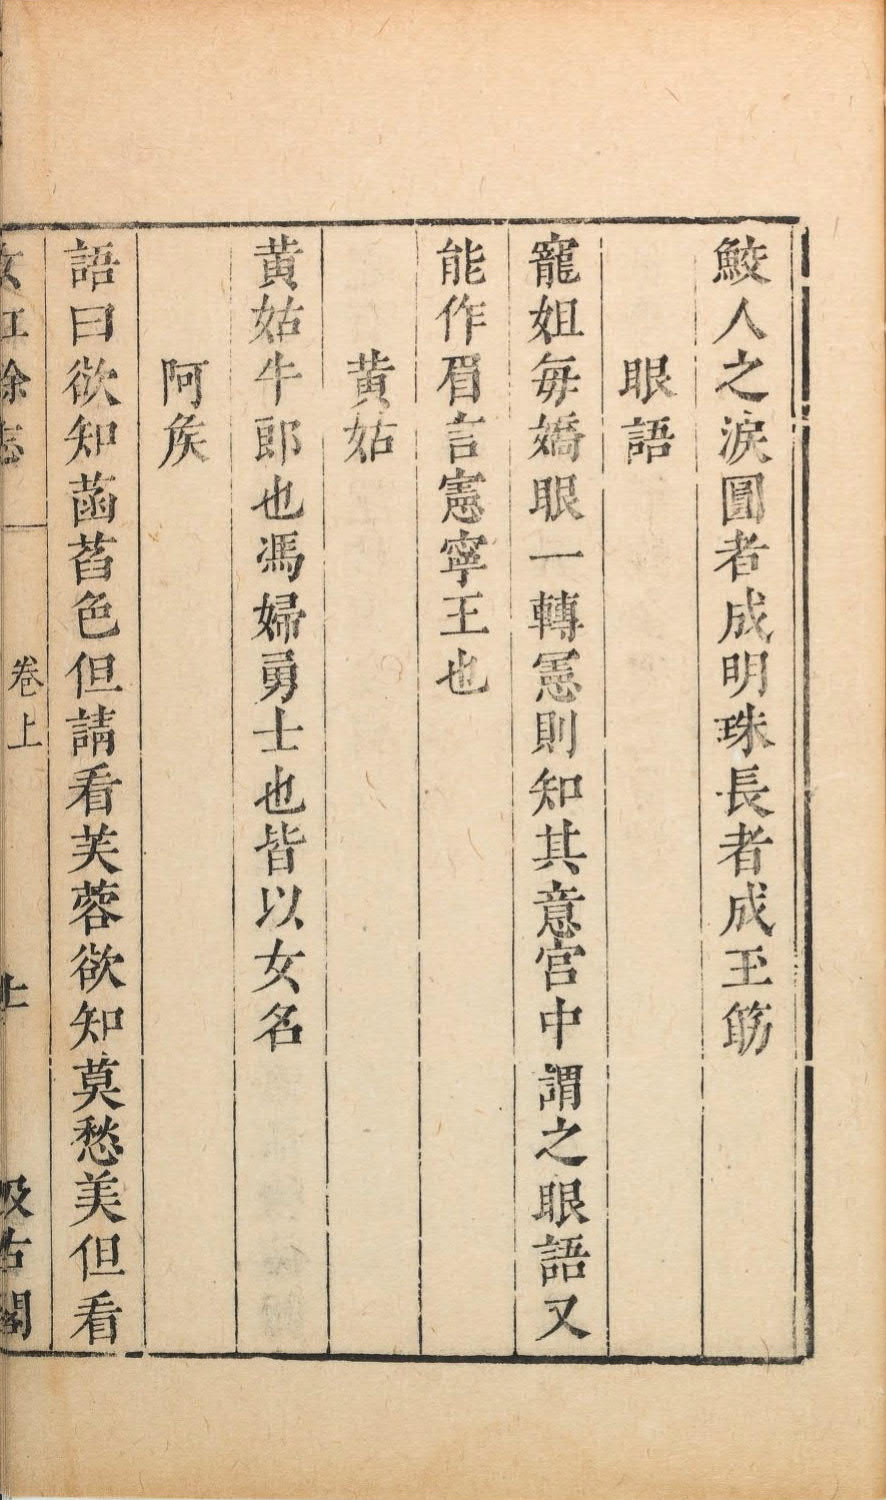 鮫人之淚圓者成明珠長者成玉筯
眼語
寵姐每嬌眼一轉憲則知其意宮中謂之眼語又
能作眉言憲寧王也
黃姑
黃姑牛郎也馮婦勇士也皆以女名
阿矦
語曰欲知菡萏色但請看芙蓉欲知莫愁美但看
女紅餘志
卷上
汲古閣